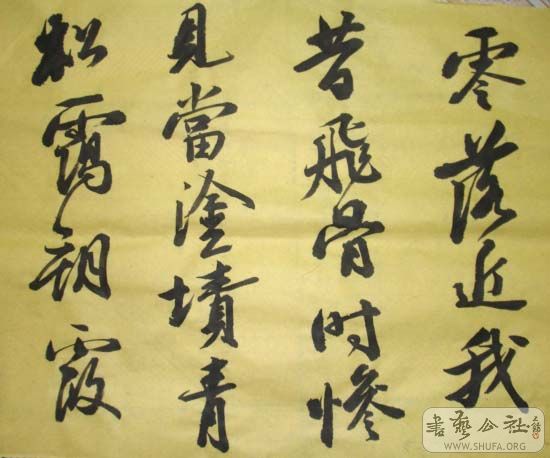 零落近我
昔飛骨時慘
見當塗墳青
松靄朝霞
書藝公社
WWW.SHUFA.ORG